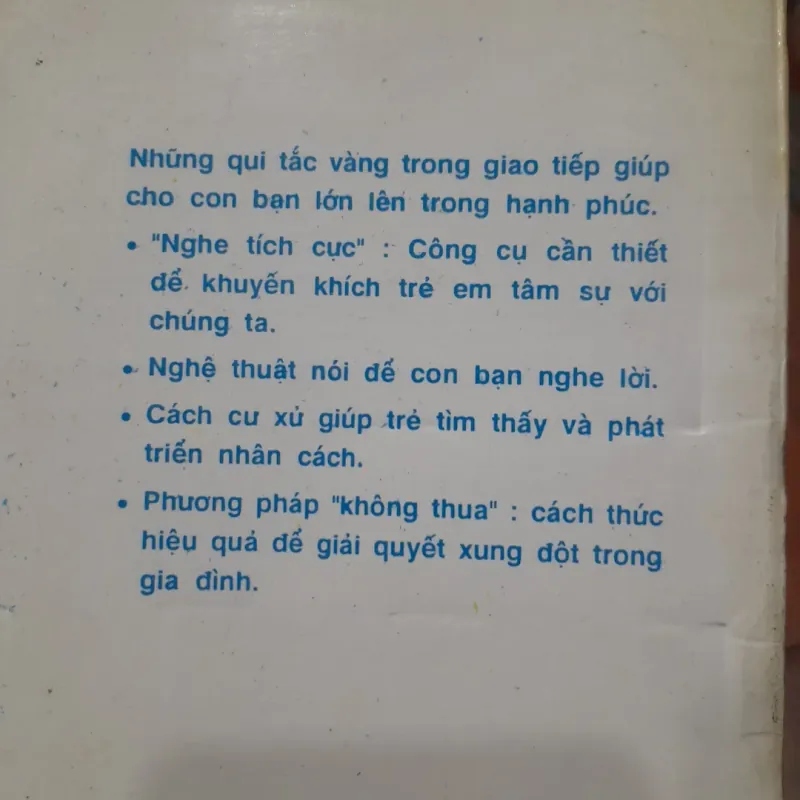 Những qui tắc vàng trong giao tiếp giúp
cho con bạn lớn lên trong hạnh phúc.
• "Nghe tích cực" : Công cụ cần thiết
để khuyến khích trẻ em tâm sự với
chúng ta.
• Nghệ thuật nói để con bạn nghe lời.
• Cách cư xử giúp trẻ tìm thấy và phát
triển nhân cách.
• Phương pháp "không thua" : cách thức
hiệu quả để giải quyết xung đột trong
gia đình.